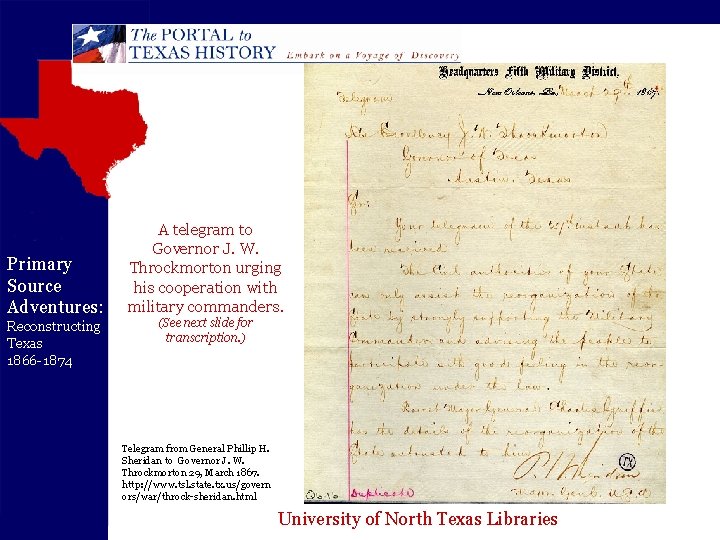 The PORTAL to
TEXAS HISTORY Embark on a Voyage of Discovery
Primary
Source
Adventures:
Reconstructing
Texas
1866-1874
A telegram to
Governor J. W.
Throckmorton urging
his cooperation with
military commanders.
(See next slide for
transcription.)
Telegram from General Phillip H.
Sheridan to Governor J. W.
Throckmorton 29, March 1867.
http://www.tsl.state.tx.us/govern
ors/war/throck-sheridan.html
Headquarters Fifth Military District,
New Orleans, La., March 29th 1867.
Telegram
His Excellency J. W. Throckmorton
Governor of Texas
Austin, Texas
Sir:
Your telegram of the 27th inst has
been received
The Civil authorities of your State
can only assist the reorganization of the
State by strongly supporting the Military
Commander and advising the people to
participate with good feeling in the reor-
ganization under the law.
Brevet Major General Charles Griffin
has the details of the reorganization of the
State entrusted to him
P. H. Sheridan
Major Genl. U.S.A
Duplicate
University of North Texas Libraries